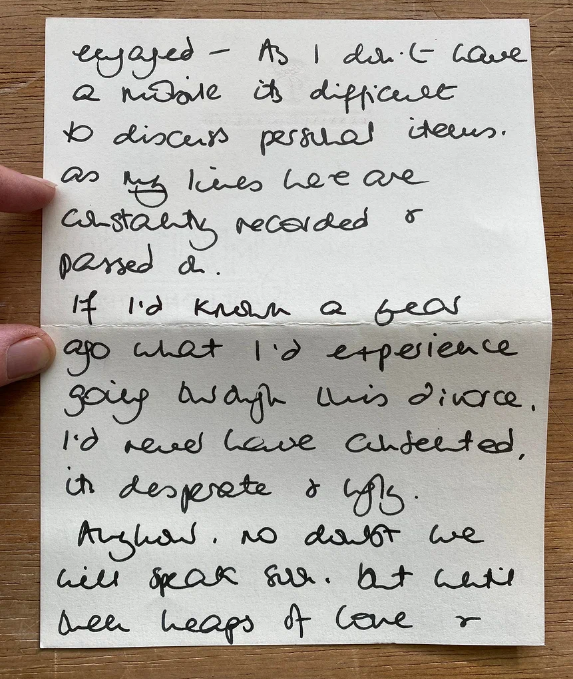 engaged - As I don't have
a mobile its difficult
to discuss personal items.
as my lines here are
constantly recorded &
passed on.
If I'd known a year
ago what I'd experience
going through this divorce.
I'd never have consented,
its desperate & ugly.
Anyhow. no doubt we
will speak soon. but until
then heaps of love &